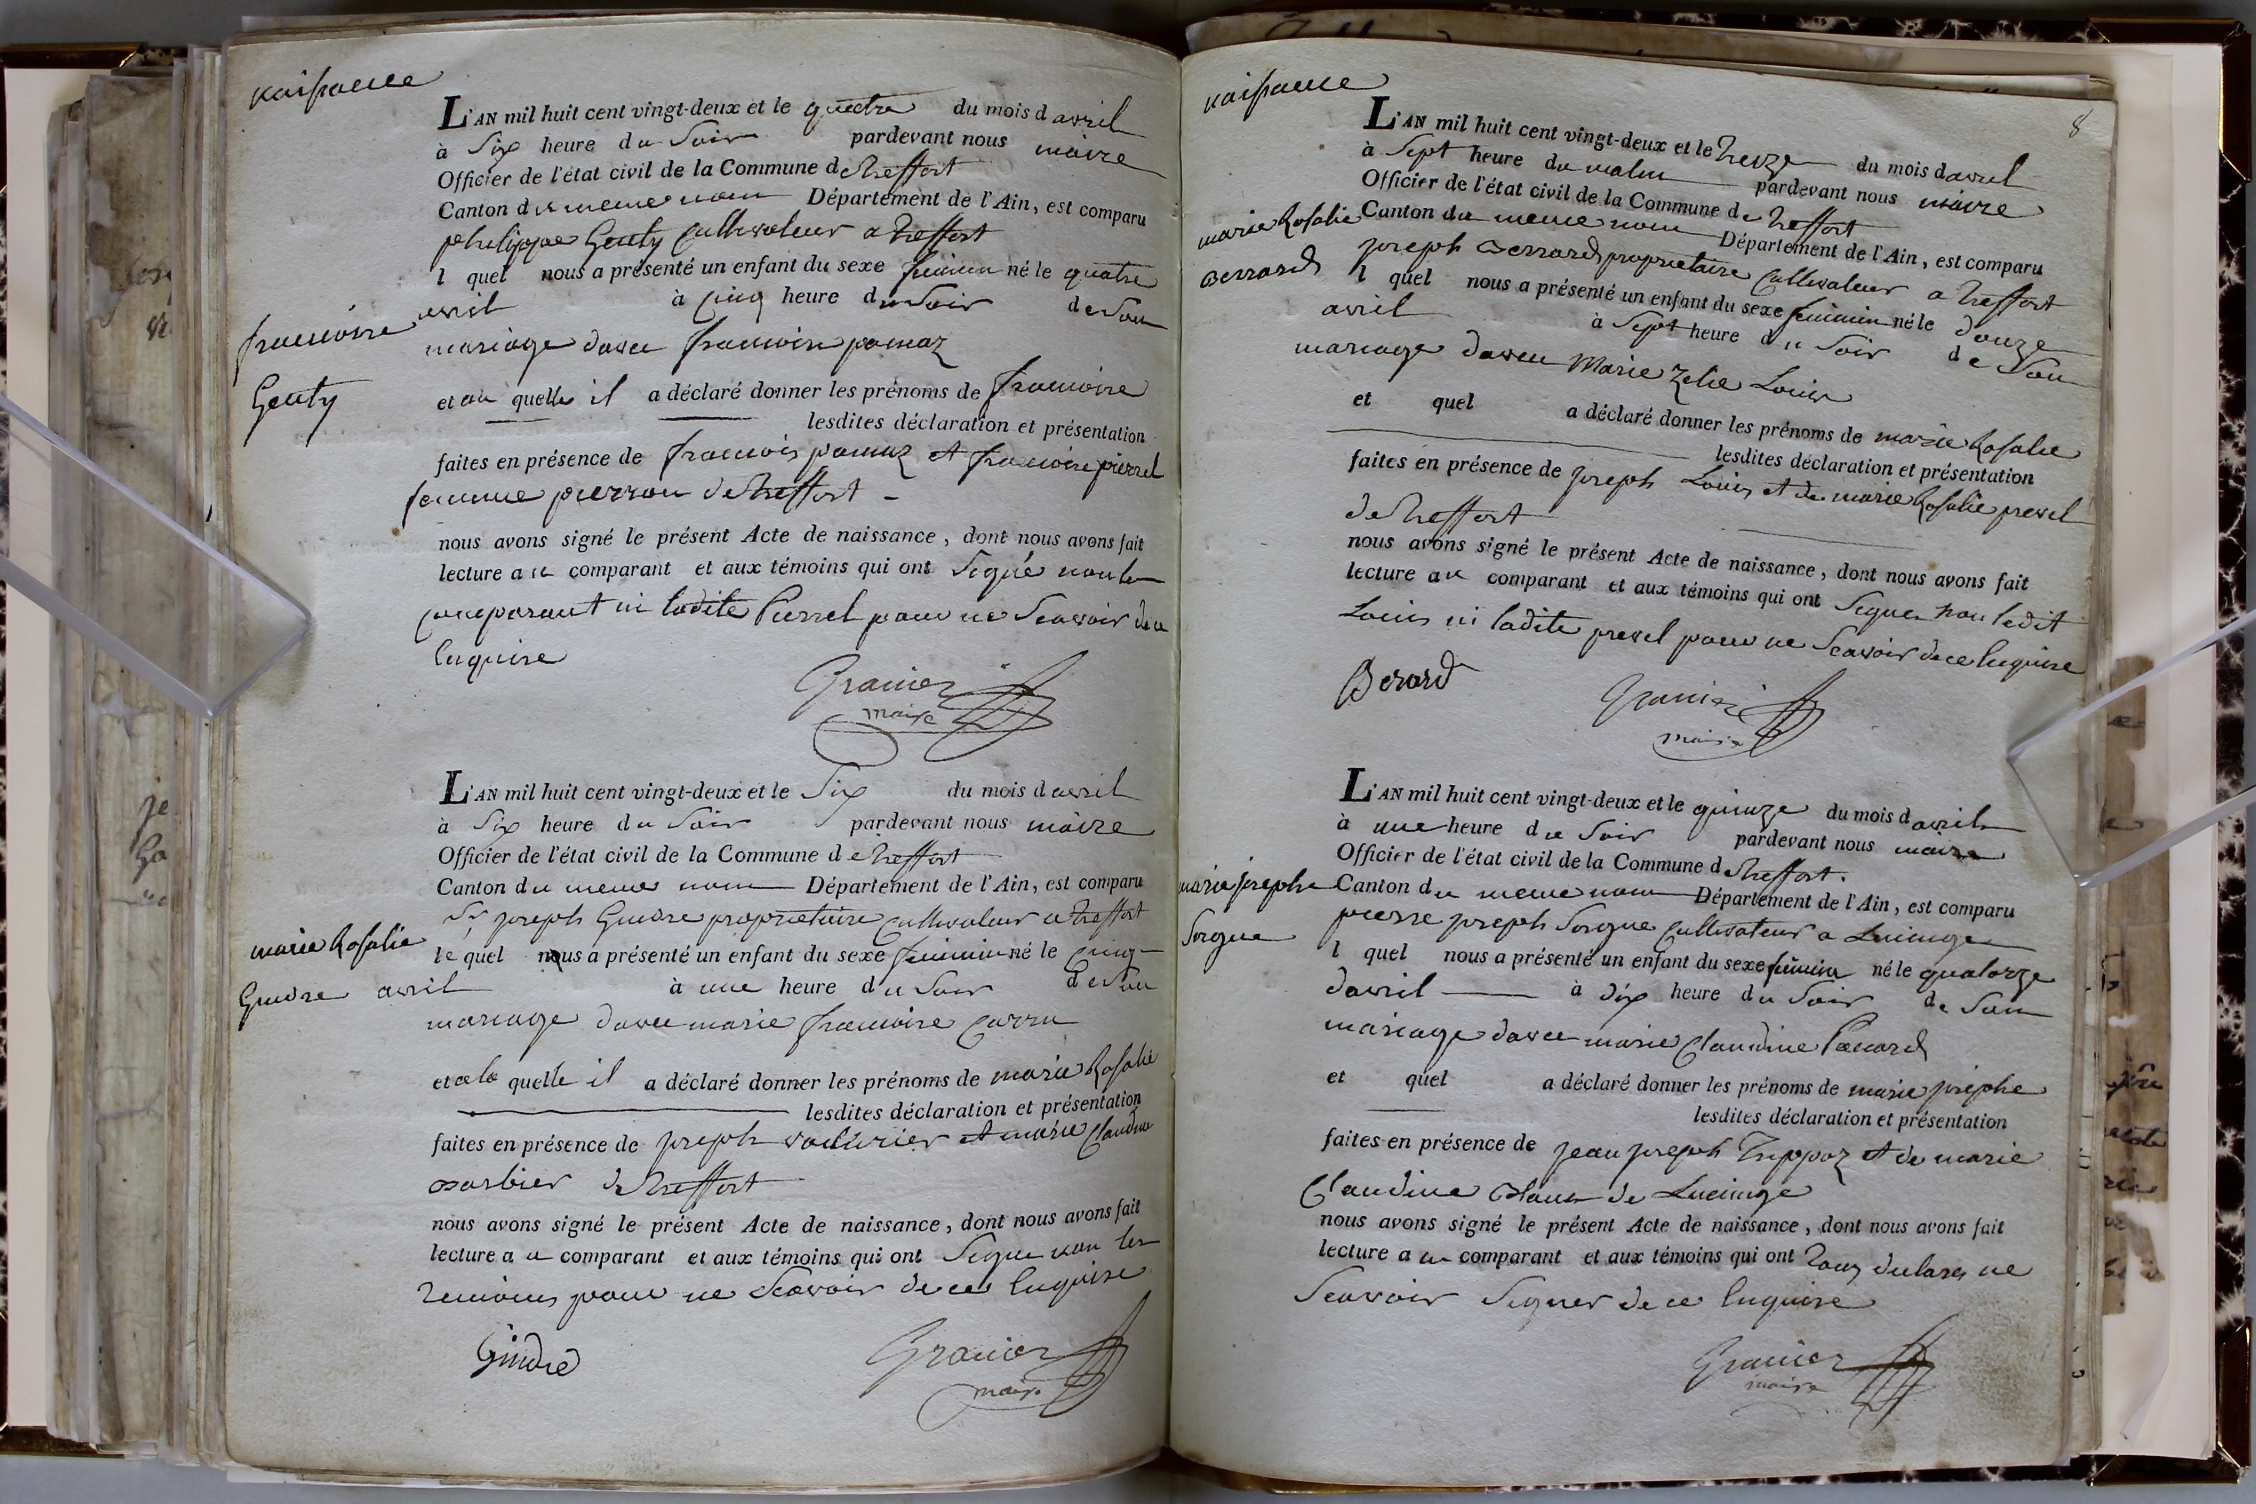 naissance
L'AN mil huit cent vingt-deux et le quatre du mois d avril
à Six heure du Soir pardevant nous maire
Officier de l'état civil de la Commune de treffort
Canton du meme nom Département de l'Ain, est comparu
philippe Genty Cultivateur a treffort
l quel nous a présenté un enfant du sexe feminin né le quatre
avril à Cinq heure du Soir de Son
mariage davec francoise pomaz
francoise
Genty
et au quelle il a déclaré donner les prénoms de francoise
lesdites déclaration et présentation
faites en présence de francois pomaz et francoise pierrel
femme pierron de treffort
nous avons signé le présent Acte de naissance, dont nous avons fait
lecture au comparant et aux témoins qui ont Signé non le
comparant ni ladite Pierrel pour ne Scavoir de ce
Enquise
Granier
maire
L'AN mil huit cent vingt-deux et le Six du mois d avril
à Six heure du Soir pardevant nous maire
Officier de l'état civil de la Commune de treffort
Canton du meme nom Département de l'Ain, est comparu
Sr joseph Guidre proprietaire Cultivateur a treffort
le quel nous a présenté un enfant du sexe feminin né le Cinq
marie Rosalie
Guidre
avril à une heure du Soir de Son
mariage davec marie francoise Carru
et a la quelle il a déclaré donner les prénoms de marie Rosalie
lesdites déclaration et présentation
faites en présence de joseph voiturier et marie Claudine
Barbier de treffort
nous avons signé le présent Acte de naissance, dont nous avons fait
lecture a u comparant et aux témoins qui ont Signe non les
temoins pour ne Scavoir de ce Enquise
Gindre
Granier
maire
8
naissance
L'AN mil huit cent vingt-deux et le treize du mois davril
à Sept heure du matin pardevant nous maire
Officier de l'état civil de la Commune de treffort
Canton du meme nom Département de l'Ain, est comparu
marie Rosalie
Berrard
joseph Berrard proprietaire Cultivateur a treffort
l quel nous a présenté un enfant du sexe feminin né le douze
avril à Sept heure du Soir de Son
mariage davec Marie Zelie Louis
et quel a déclaré donner les prénoms de marie Rosalie
lesdites déclaration et présentation
faites en présence de joseph Louis et de marie Rosalie prevel
de treffort
nous avons signé le présent Acte de naissance, dont nous avons fait
lecture au comparant et aux témoins qui ont Signer non ledit
Louis ni ladite prevel pour ne Scavoir de ce Enquise
Berard
Granier
maire
L'AN mil huit cent vingt-deux et le quinze du mois davril
à une heure du Soir pardevant nous maire
Officier de l'état civil de la Commune de treffort.
Canton du meme nom Département de l'Ain, est comparu
marie josephe
Sorgue
pierre joseph Sorgue Cultivateur a Lucinge
l quel nous a présenté un enfant du sexe feminin né le quatorze
davril à dix heure du Soir de Son
mariage davec marie Claudine Penard
et quel a déclaré donner les prénoms de marie josephe
lesdites déclaration et présentation
faites en présence de jean joseph Trippoz et de marie
Claudine Blanc de Lucinge
nous avons signé le présent Acte de naissance, dont nous avons fait
lecture a u comparant et aux témoins qui ont Tous declares ne
Scavoir Signer de ce Enquise
Granier
maire